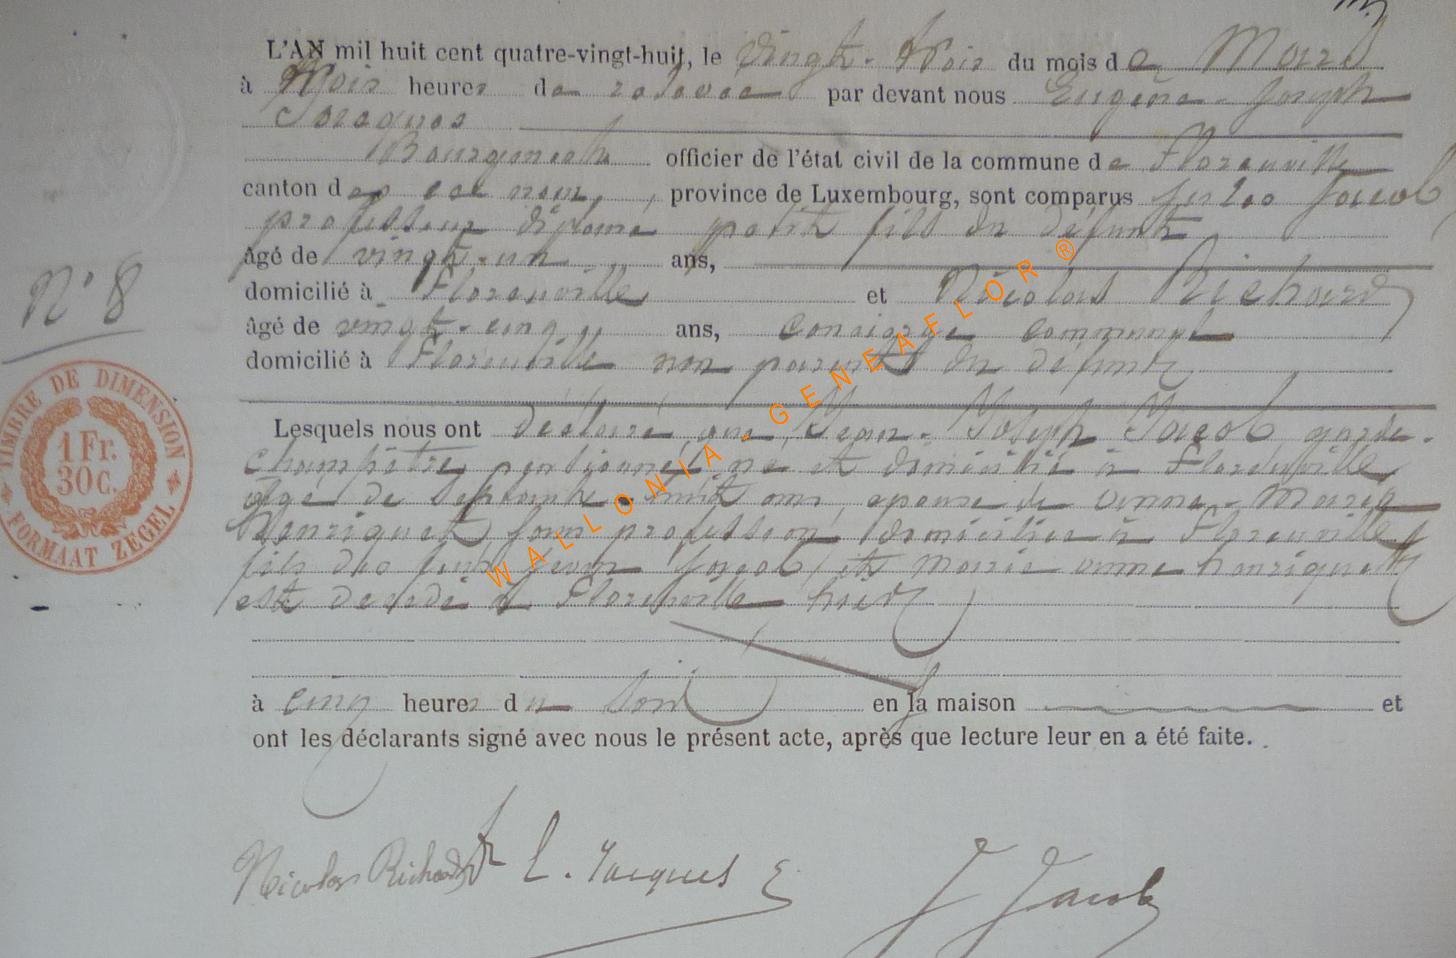 L'AN mil huit cent quatre-vingt-huit, le vingt-trois du mois de Mars
à trois heures de relevée par devant nous Eugène-Joseph
Jacques
Bourgmestre officier de l'état civil de la commune de Florenville
canton de ce nom, province de Luxembourg, sont comparus Jules Jacob
professeur diplomé petit fils du défunt
âgé de vingt-un ans,
domicilié à Florenville et Nicolas Richard
âgé de vingt-cinq ans, concierge communal
domicilié à Florenville non parent du défunt
Lesquels nous ont déclaré que Jean-Joseph Jacob garde-
champêtre pensionné né et domicilié à Florenville
âgé de septante-huit ans, epoux de Anne-Marie
Henriquet sans profession, domiciliée à Florenville
fils des feux Jean Jacob et Marie anne henriquet
est décédé à Florenville hier
à cinq heures du soir en la maison et
ont les déclarants signé avec nous le présent acte, après que lecture leur en a été faite.
N° 8
TIMBRE DE DIMENSION
1 Fr.
30 C.
FORMAAT ZEGEL
WALLONIA - GENEAFLOR ®
Nicolas Richard E. Jacques J Jacob